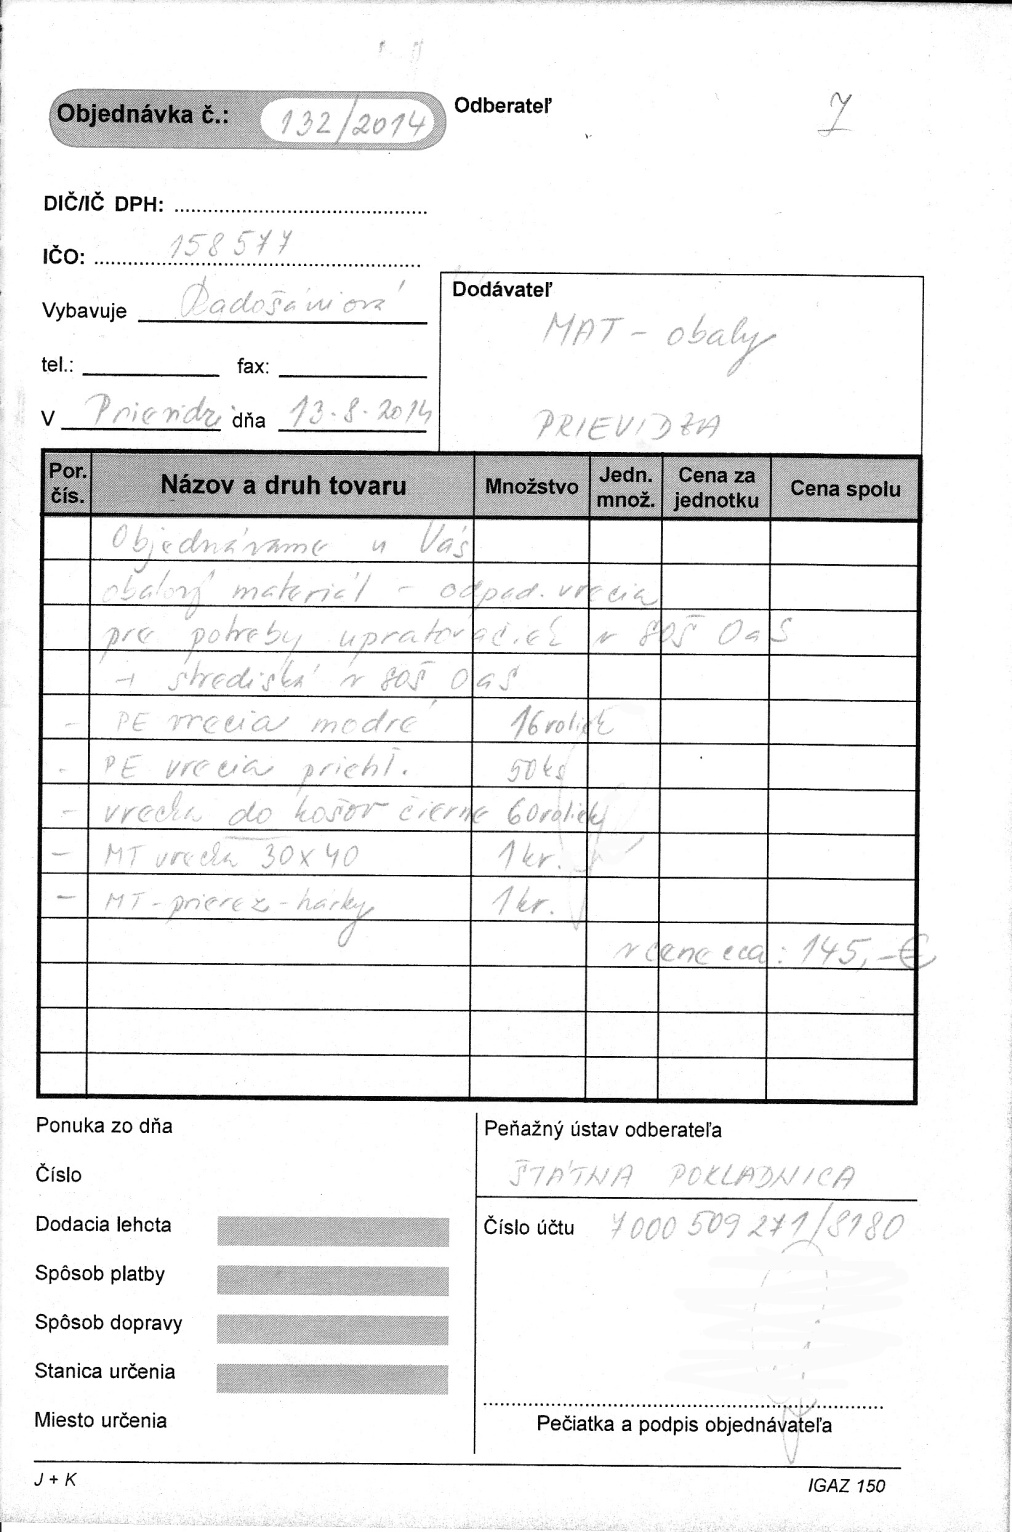 Objednávka č.: 132/2014
Odberateľ
7
DIČ/IČ DPH:
IČO: 158577
Vybavuje Radošániová
tel.: fax:
V Prievidzi dňa 13.8.2014
Dodávateľ
MAT - obaly
PRIEVIDZA
Por. čís. Názov a druh tovaru Množstvo Jedn. množ. Cena za jednotku Cena spolu
Objednávame u Vás
obalový materiál - odpad. vrecia
pre potreby upratovačiek v SOŠ OaS
+ strediská v SOŠ OaS
- PE vrecia modré 16 roliek
- PE vrecia priehľ. 50 ks
- vrecká do košov čierne 60 roliek
- MT vrecká 30x40 1 kr.
- MT - prierez - hárky 1 kr.
v cene cca: 145,-€
Ponuka zo dňa
Číslo
Dodacia lehota
Spôsob platby
Spôsob dopravy
Stanica určenia
Miesto určenia
Peňažný ústav odberateľa
ŠTÁTNA POKLADNICA
Číslo účtu 7000 509 271/8180
Pečiatka a podpis objednávateľa
J + K
IGAZ 150